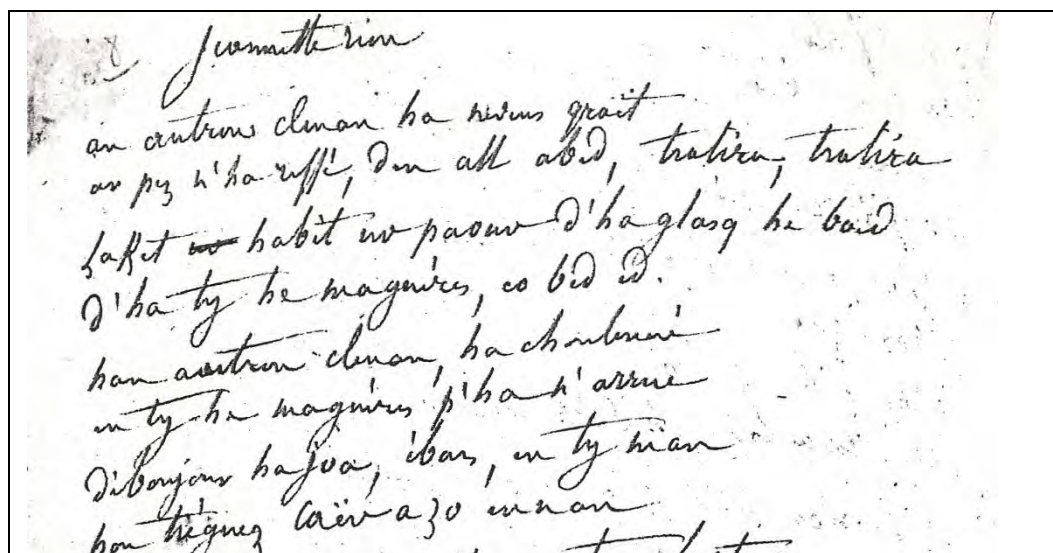 8 Jeannette rion
an autrou clunan ha nevus graït
ar pez n'ha riffé, den all abed, tralira, tralira
laket habit ur paour d'ha glasq he boed
d'ha ty he maguéres, eo bed ed.
han autrou clunan, ha
en ty he maguéres p'ha n'arrue
bonjour ha joa, ébars, en ty man
hou tréguez caër a zo ennan